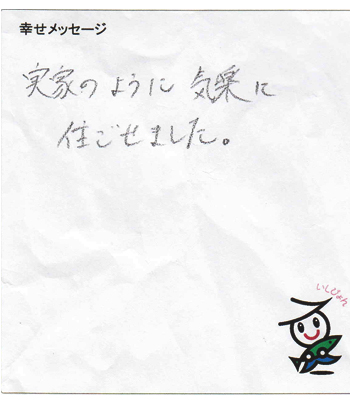 幸せメッセージ
実家のように 気楽に
住ごせました。
いしぴょん